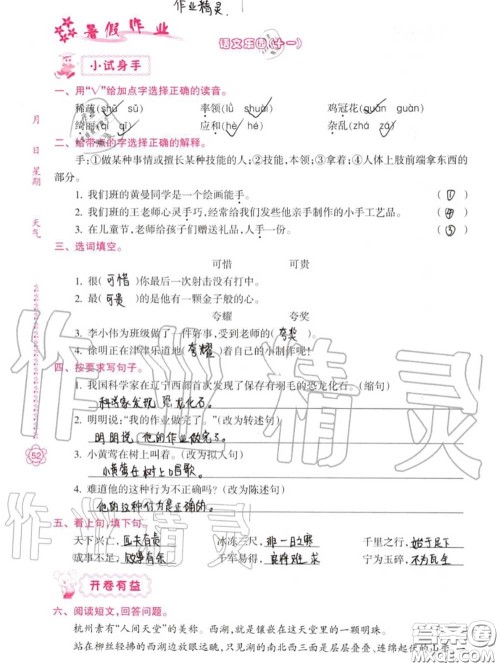 作业精灵
暑假作业
语文乐园(十一)
小试身手
一、用“√”给加点字选择正确的读音。
稀疏(shū sū) 率领(lǜ shuài) 鸡冠花(guān guàn)
绮丽(qǐ qí) 应和(hè hé) 杂乱(zhá zá)
二、给带点的字选择正确的解释。
手:①做某种事情或擅长某种技能的人;②技能,本领;③拿着;④人体上肢前端拿东西的
部分。
1. 我们班的黄曼同学是一个绘画能手。 (①)
2. 我们班的王老师心灵手巧,经常给我们发些他亲手制作的小手工艺品。 (④)
3. 在儿童节,老师给孩子们赠送礼品,人手一份。 (③)
三、选词填空。
可惜 可贵
1. 很(可惜)你最后一次射击没有打中。
2. 最(可贵)的是他有一颗金子般的心。
夸耀 夸奖
3. 李小伟为班级做了一件好事,受到老师的(夸奖)。
4. 徐明正在津津乐道地(夸耀)着自己的小制作呢!
四、按要求写句子。
1. 我国科学家在辽宁西部首次发现了保存有羽毛的恐龙化石。(缩句)
科学家发现恐龙化石。
2. 明明说:“我的作业做完了。”(改为转述句)
明明说,他的作业做完了。
3. 小黄莺在树上叫着。(改为拟人句)
小黄莺在树上唱歌。
4. 难道他的这种行为不正确吗?(改为陈述句)
他的这种行为是正确的。
五、看上句,填下句。
天下兴亡,匹夫有责 冰冻三尺,非一日之寒 千里之行,始于足下
成事不足,败事有余 千军易得,良将难求 宁为玉碎,不为瓦全
开卷有益
六、阅读短文,回答问题。
杭州素有“人间天堂”的美称。西湖,就是镶嵌在这天堂里的一颗明珠。
站在柳丝轻拂的西湖边放眼远眺,只见湖的南北西三面是层层叠叠、连绵起伏的
月
日
星期
天气
52
作业精灵
作业精灵
答案圈